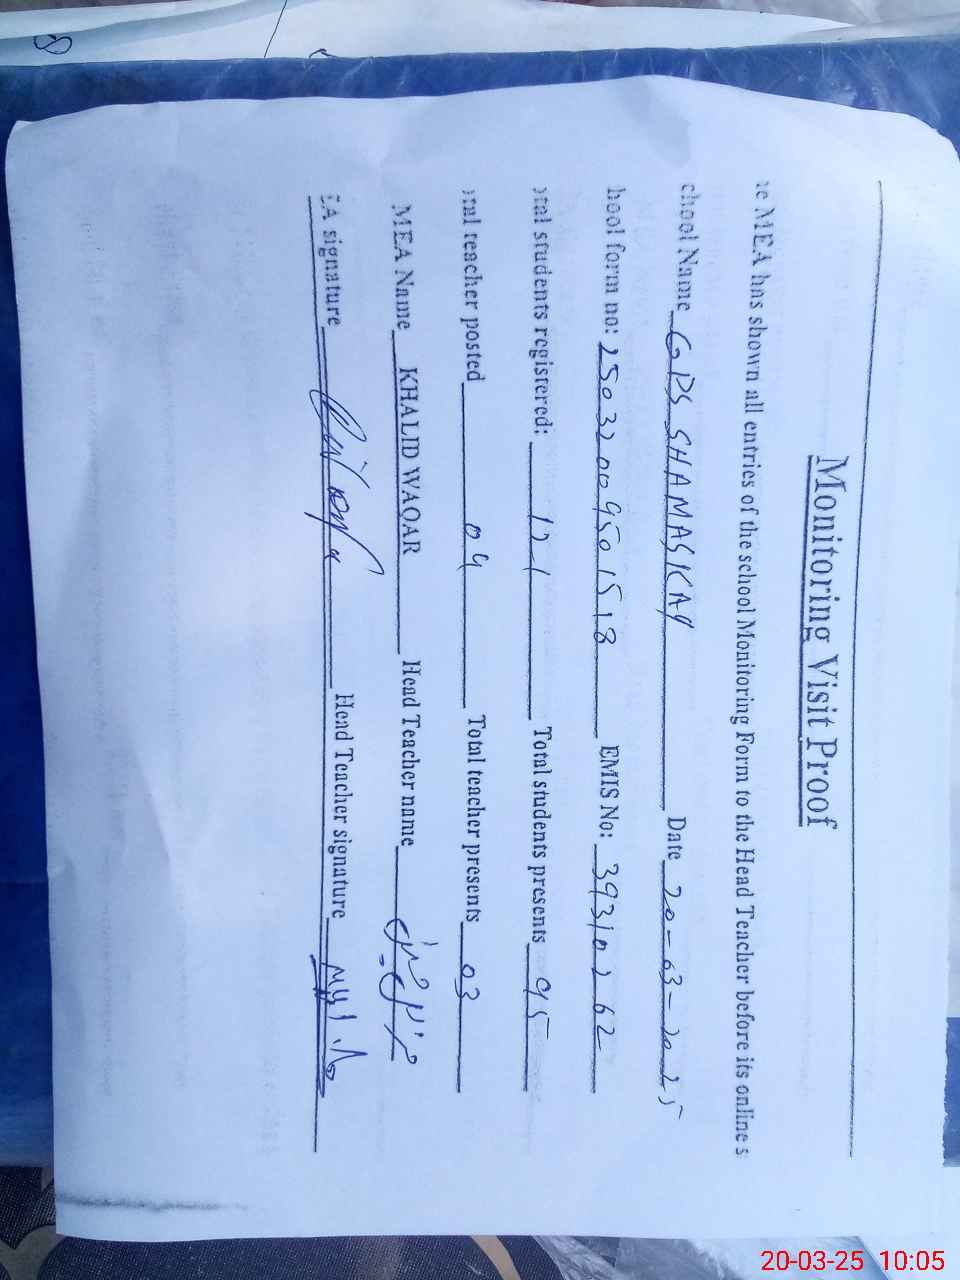 Monitoring Visit Proof
he MEA has shown all entries of the school Monitoring Form to the Head Teacher before its online s
chool Name GPS SHAMASKAY Date 20-03-2025
hool form no: 250320095015 13 EMIS No: 39310262
otal students registered: 121 Total students presents 95
otal teacher posted 04 Total teacher presents 03
MEA Name KHALID WAQAR Head Teacher name
EA signature Head Teacher signature
20-03-25 10:05